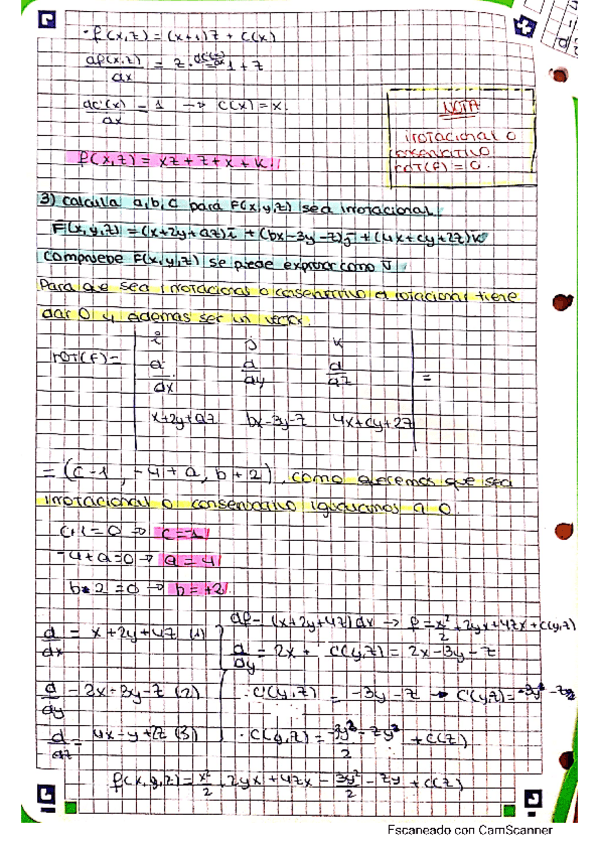 · f(x,z) = (x+1)z + C(x)
df(x,z)/dx = z · dC(x)/dx = 1 + z
dC(x)/dx = 1 → C(x) = x.
f(x,z) = xz + z + x + k //
NOTA
irrotacional o
conservativo
rot(F) = 0.
3) calcula a, b, c para F(x,y,z) sea irrotacional.
F(x,y,z) = (x+2y+az)i + (bx-3y-z)j + (4x+cy+2z)k
compruebe F(x,y,z) se piede expresar como ∇
Para que sea irrotacional o conservativo el rotacional tiene
dar 0 y ademas ser un vector.
i j k
rot(F) = d/dx d/dy d/dz =
x+2y+az bx-3y-z 4x+cy+2z
= (c-1, -4+a, b+2), como queremos que sea
irrotacional o conservativo igualamos a 0.
c+1=0 ⇒ c=-1
-4+a=0 → a=4
b-2=0 → b=+2
d/dx = x+2y+4z (1) df = (x+2y+4z)dx → f = x²/2 + 2yx + 4zx + C(y,z)
d/dy = 2x + C'(y,z) = 2x-3y-z
d/dy = 2x-3y-z (2) · C'(y,z) = -3y-z → C(y,z) =
d/dz = 4x-y+2z (3) · C(y,z) = -3y²/2 - zy + C(z)
f(x,y,z) = x²/2 + 2yx + 4zx - 3y²/2 - zy + C(z)
Escaneado con CamScanner